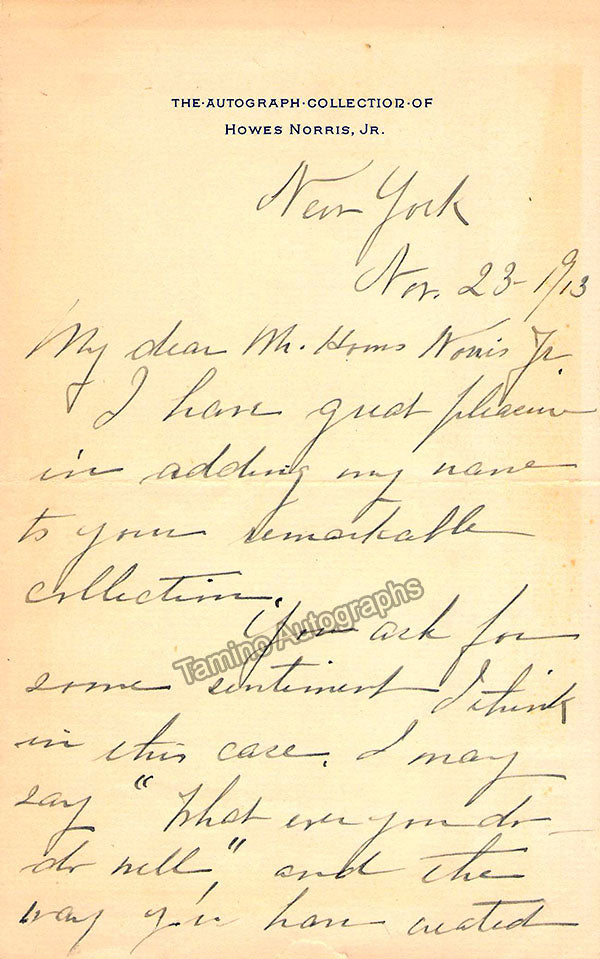 THE·AUTOGRAPH·COLLECTION·OF
HOWES NORRIS, JR.
New York
Nov. 23- 1913
My dear Mr. Howes Norris Jr.
I have great pleasure
in adding my name
to your remarkable
collection.
You ask for
Tamino Autographs
some sentiment I think
in this case, I may
say "What ever you do-
do well", and the
way you have created